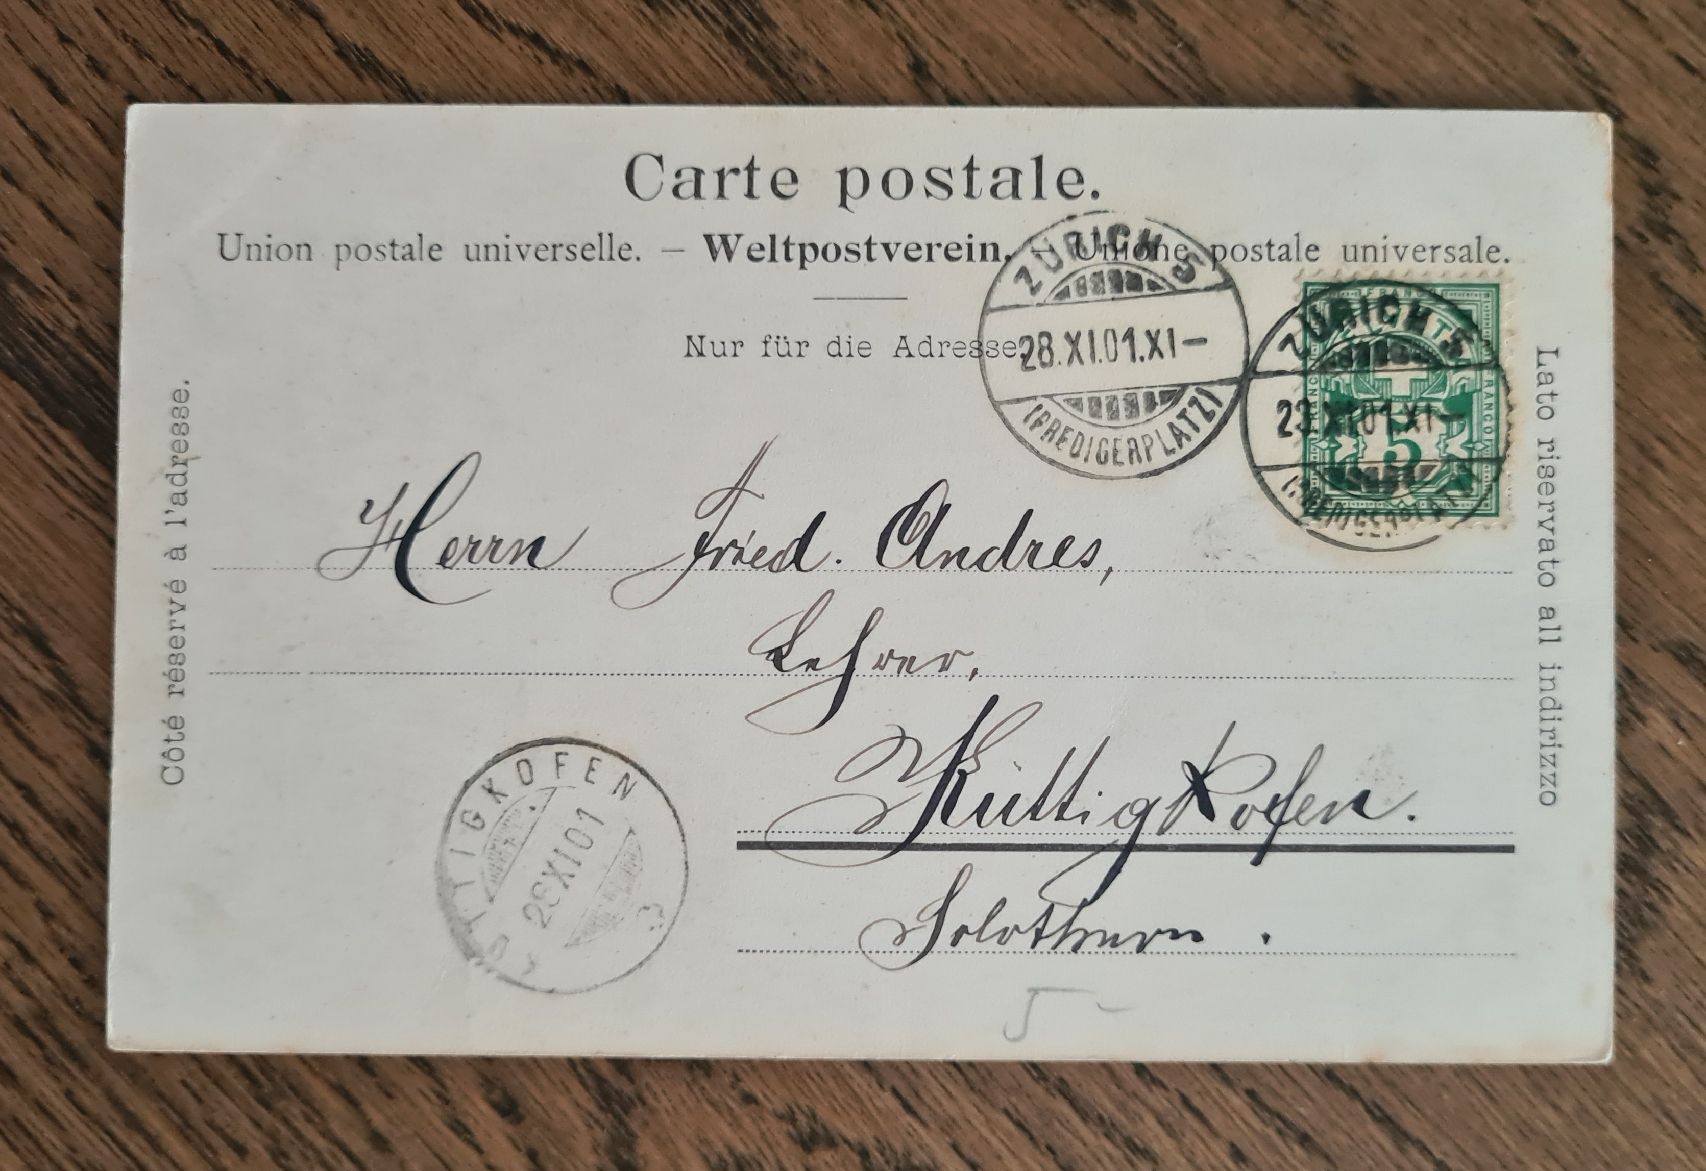 Carte postale.
Union postale universelle. – Weltpostverein. Unione postale universale.
Nur für die Adresse.
ZÜRICH 5
28.XI.01.XI–
(PREDIGERPLATZ)
ZÜRICH 5
28.XI.01.XI–
(PREDIGERPLATZ)
FRANCO
5
Côté réservé à l'adresse.
Lato riservato all indirizzo
Herrn Fried. Andres,
Lehrer,
Küttigkofen.
Solothurn.
KÜTTIGKOFEN
28XI01
5–